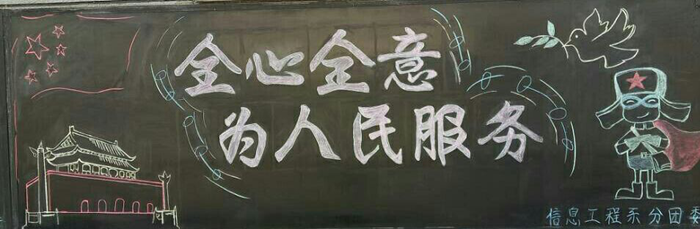 全心全意
为人民服务
信息工程系分团委